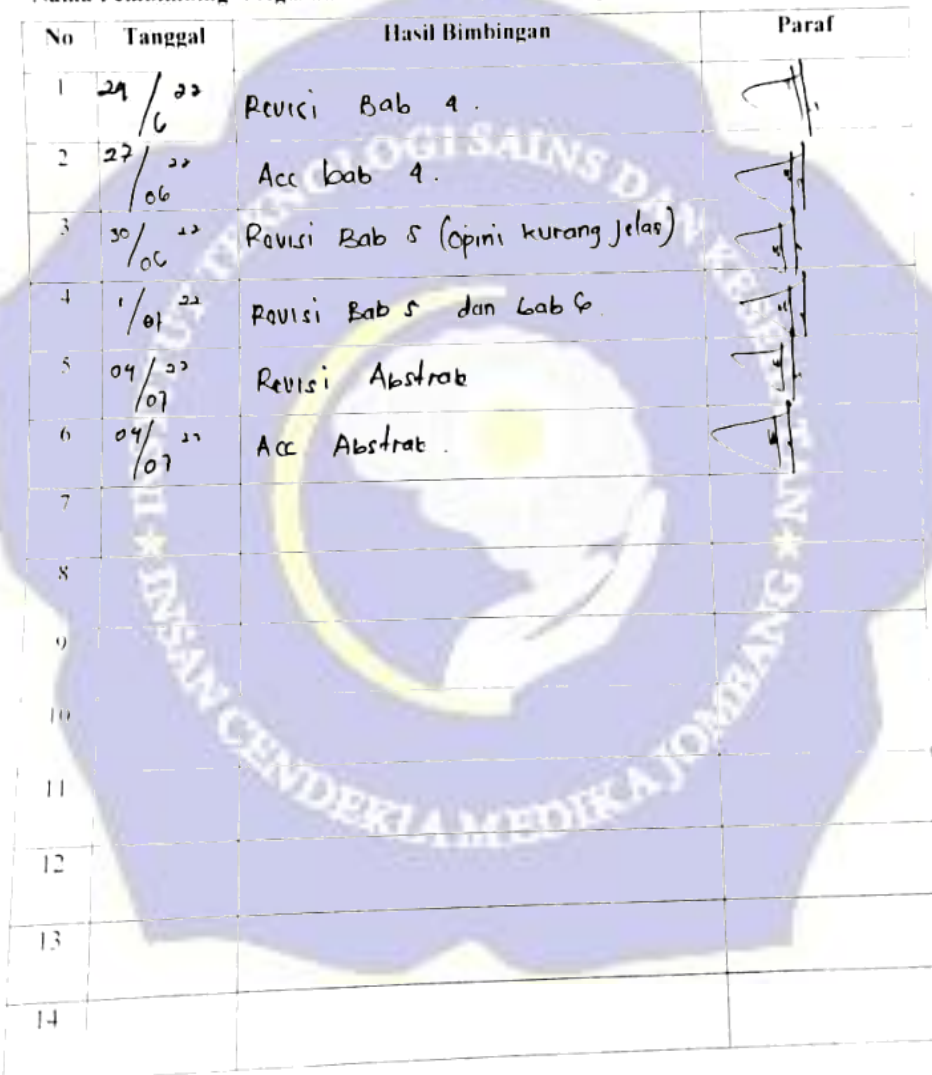 No Tanggal Hasil Bimbingan Paraf
1 24/6 22 Revisi Bab 4.
2 27/06 22 Acc bab 4.
3 30/06 22 Revisi Bab 5 (Opini kurang Jelas)
4 1/07 22 Revisi Bab 5 dan bab 6
5 04/07 22 Revisi Abstrak
6 04/07 22 Acc Abstrak.
7
8
9
10
11
12
13
14
TEKNOLOGI SAINS DAN
INSAN CENDEKIA MEDIKA JOMBANG